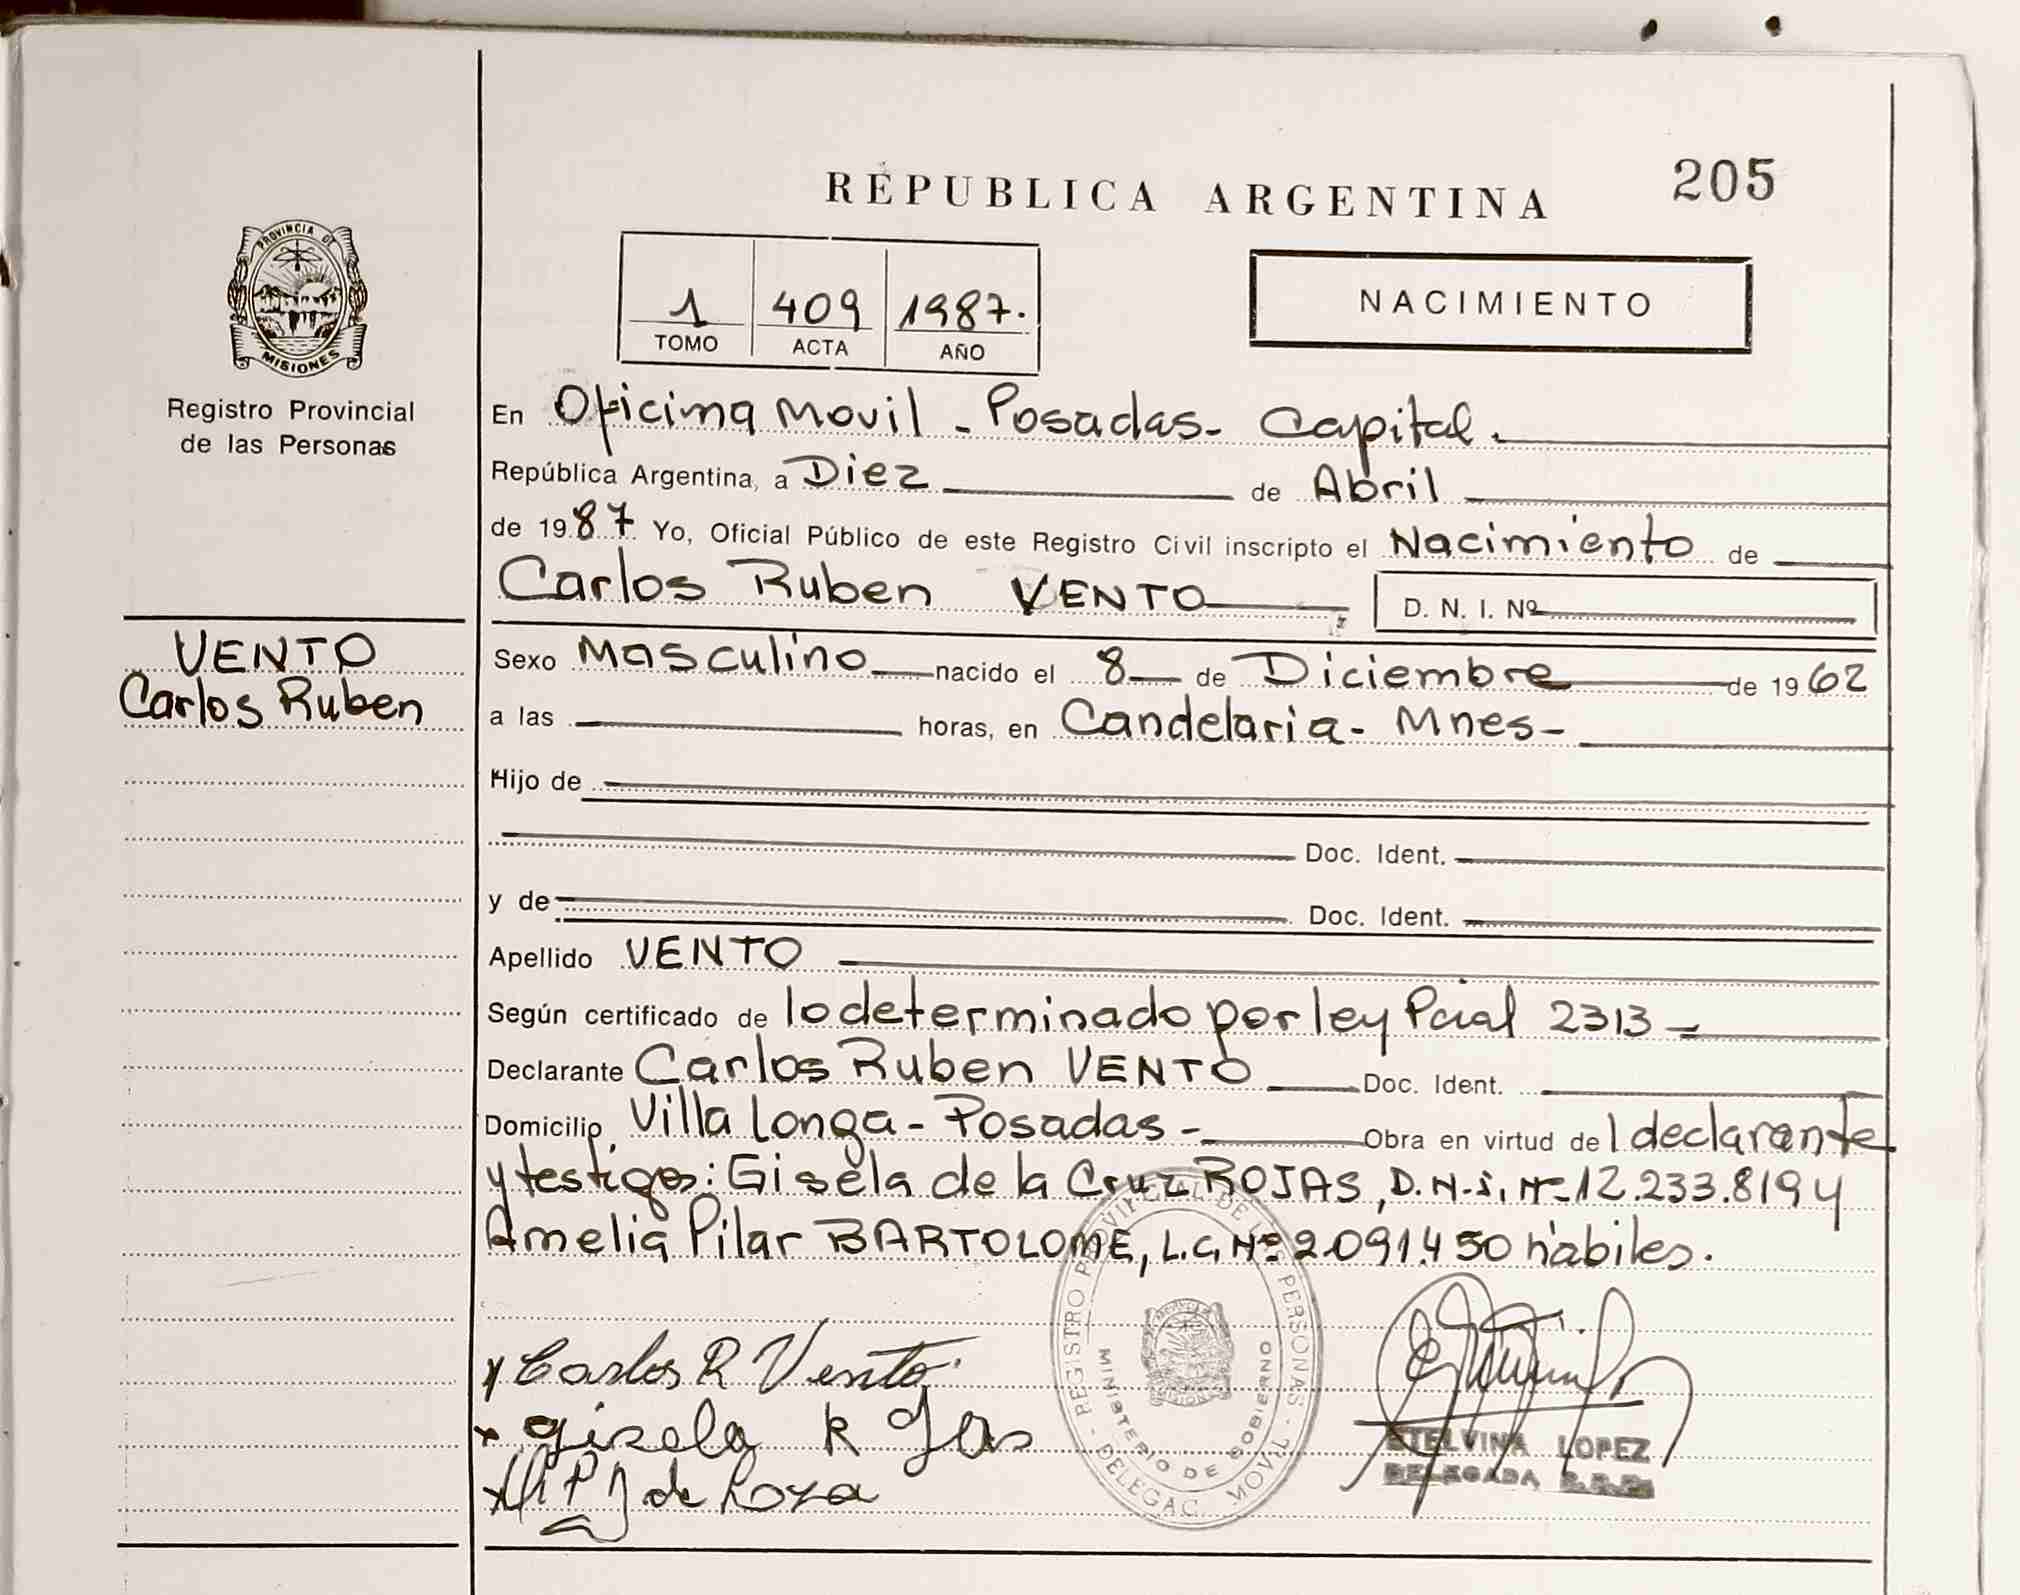 REPUBLICA ARGENTINA 205
PROVINCIA DE
MISIONES
Registro Provincial
de las Personas
1 409 1987.
TOMO ACTA AÑO
NACIMIENTO
En Oficina Movil - Posadas - Capital.
República Argentina, a Diez de Abril
de 1987 Yo, Oficial Público de este Registro Civil inscripto el Nacimiento de
Carlos Ruben VENTO D. N. I. Nº
VENTO
Carlos Ruben
Sexo Masculino nacido el 8 de Diciembre de 1962
a las horas, en Candelaria - Mnes -
Hijo de
Doc. Ident.
y de Doc. Ident.
Apellido VENTO
Según certificado de lo determinado por ley Pcial 2313 -
Declarante Carlos Ruben VENTO Doc. Ident.
Domicilio Villa Longa - Posadas - Obra en virtud del declarante
y testigos: Gisela de la Cruz ROJAS, D.N.I. Nº 12.233.819 y
Amelia Pilar BARTOLOME, L.C. Nº 2.091.450 hábiles.
Carlos R Vento
Gisela Rojas
de Loza
REGISTRO PROVINCIAL DE LAS PERSONAS - DELEGAC. MOVIL -
MINISTERIO DE GOBIERNO
STELVINA LOPEZ
DELEGADA R.P.P.